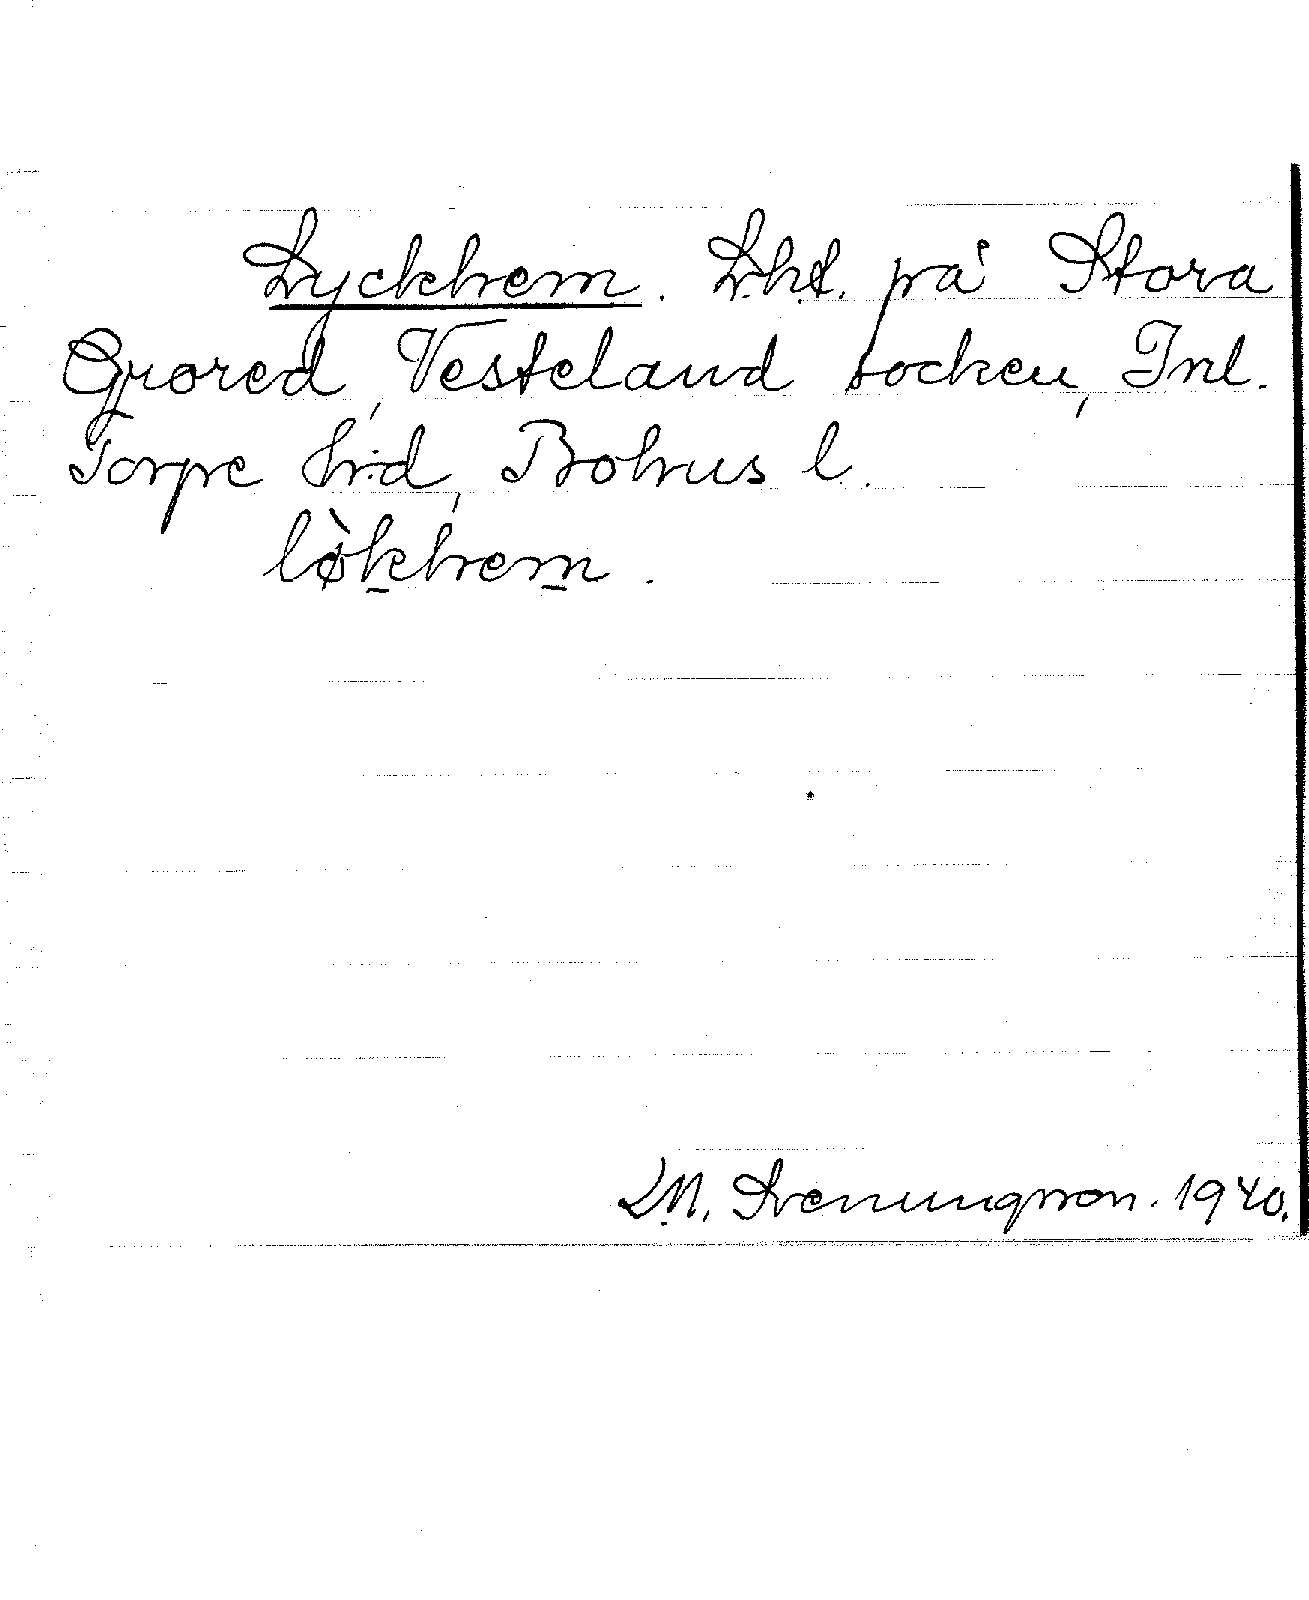 Lyckhem. Lht. på Stora
Grored, Vesteland socken, Inl.
Torpe hrd, Bohus l.
lø̀khem.
M. Sveningsson. 1940.